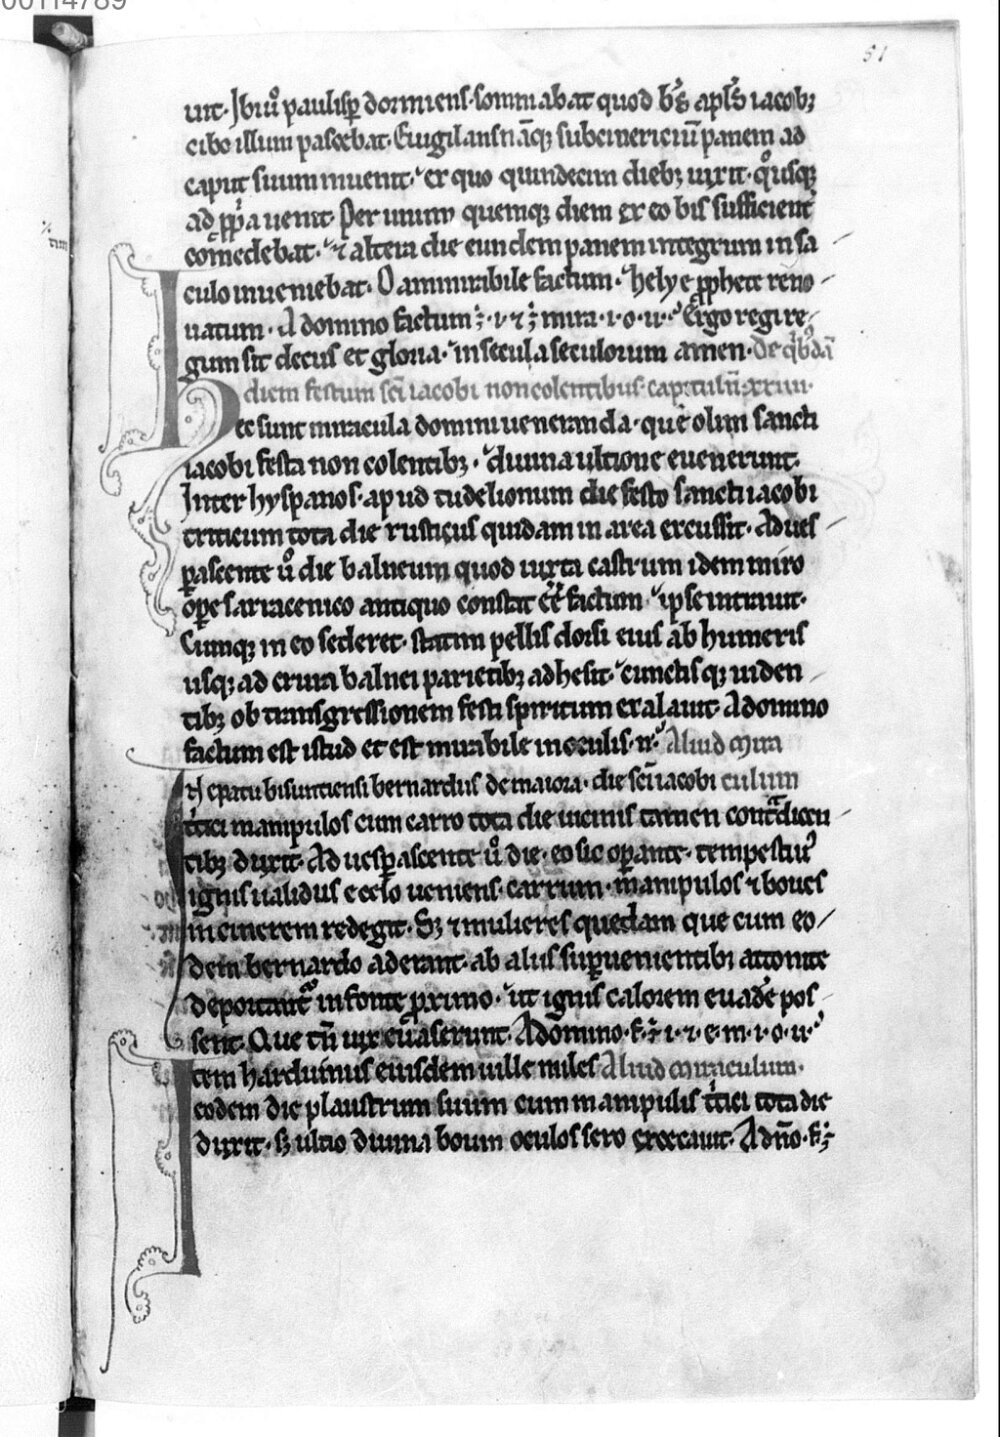 00114789
51
uit. Ibi u° paulisp̱ dormiens. somniabat quod bꝰs apl̃s iacobꝫ
cibo illum pascebat. Euigilansnāq; subcinericiū panem ad
caput suum inuenit. ex quo quindecim diebꝫ uixit. qͦusq;
ad ꝓpͥa uenit. Per unum quemq; diem ex eo bis sufficient᷑
comedebat. ⁊ altera die eundem panem integrum in sa
culo inueniebat. O ammirabile factum. helye ꝓphete reno
uatum. A domino factum ē. i. ⁊ ē mira. i. o. n. Ergo regi re
gum sit decus et gloria. in secula seculorum amen. De qͥbꝰdā
diem festum sc̄i iacobi non colentibus. capitulū. xxiiii.
Hec sunt miracula domini ueneranda. que olim sancti
iacobi festa non colentibꝫ. diuina ultione euenerunt.
Inter hyspanos. apud tudelionum die festo sancti iacobi
triticum tota die rusticus quidam in area excussit. Adues
ꝑascente u° die balneum quod iuxta castrum idem miro
oꝑe sarracenico antiquo constat eē factum ipse intrauit.
Cumq; in eo sederet. statim pellis dorsi eius ab humeris
usq; ad crura balnei parietibꝫ adhesit. cunctisq; uiden
tibꝫ ob transgressionem festi spiritum exalauit. A domino
factum est istud et est mirabile in oculis. n. Aliud mira
In epatu bisuntiensi bernardus de maiora. die sc̄i iacobi culum
tͥtici manipulos cum carro tota die uicinis tamen contᷓdicen
tibꝫ duxit. Ad uesꝑascente u° die. eo sic oꝑante. tempestiuꝰ
ignis ualidus e celo ueniens. carrum. manipulos ⁊ boues
in cinerem redegit. Sꝫ ⁊ mulieres quedam que cum eo
dem bernardo aderant. ab aliis suꝑuenientibꝫ attonite
deportant᷑ in fonte ꝓximo. ut ignis calorem euade pos
sent. Que tn̄ uix euaserunt. A domino. f. ē. i. ⁊. e. m. i. o. n.
Item harduinus eiusdem uille miles Aliud miraculum.
eodem die plaustrum suum cum manipulis tͥtici tota die
duxit. sꝫ ultio diuina boum oculos sero excecauit. A dn̄o. f. ē